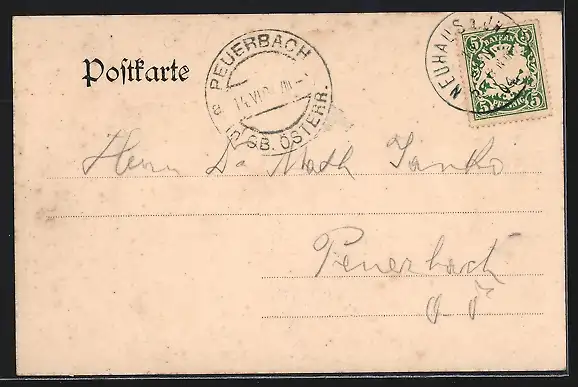 Postkarte
PEUERBACH
OB. ÖSTERR.
NEUHAUS a.
BAYERN
5 PFENNIG 5
Herrn Dr Math Janko
Peuerbach